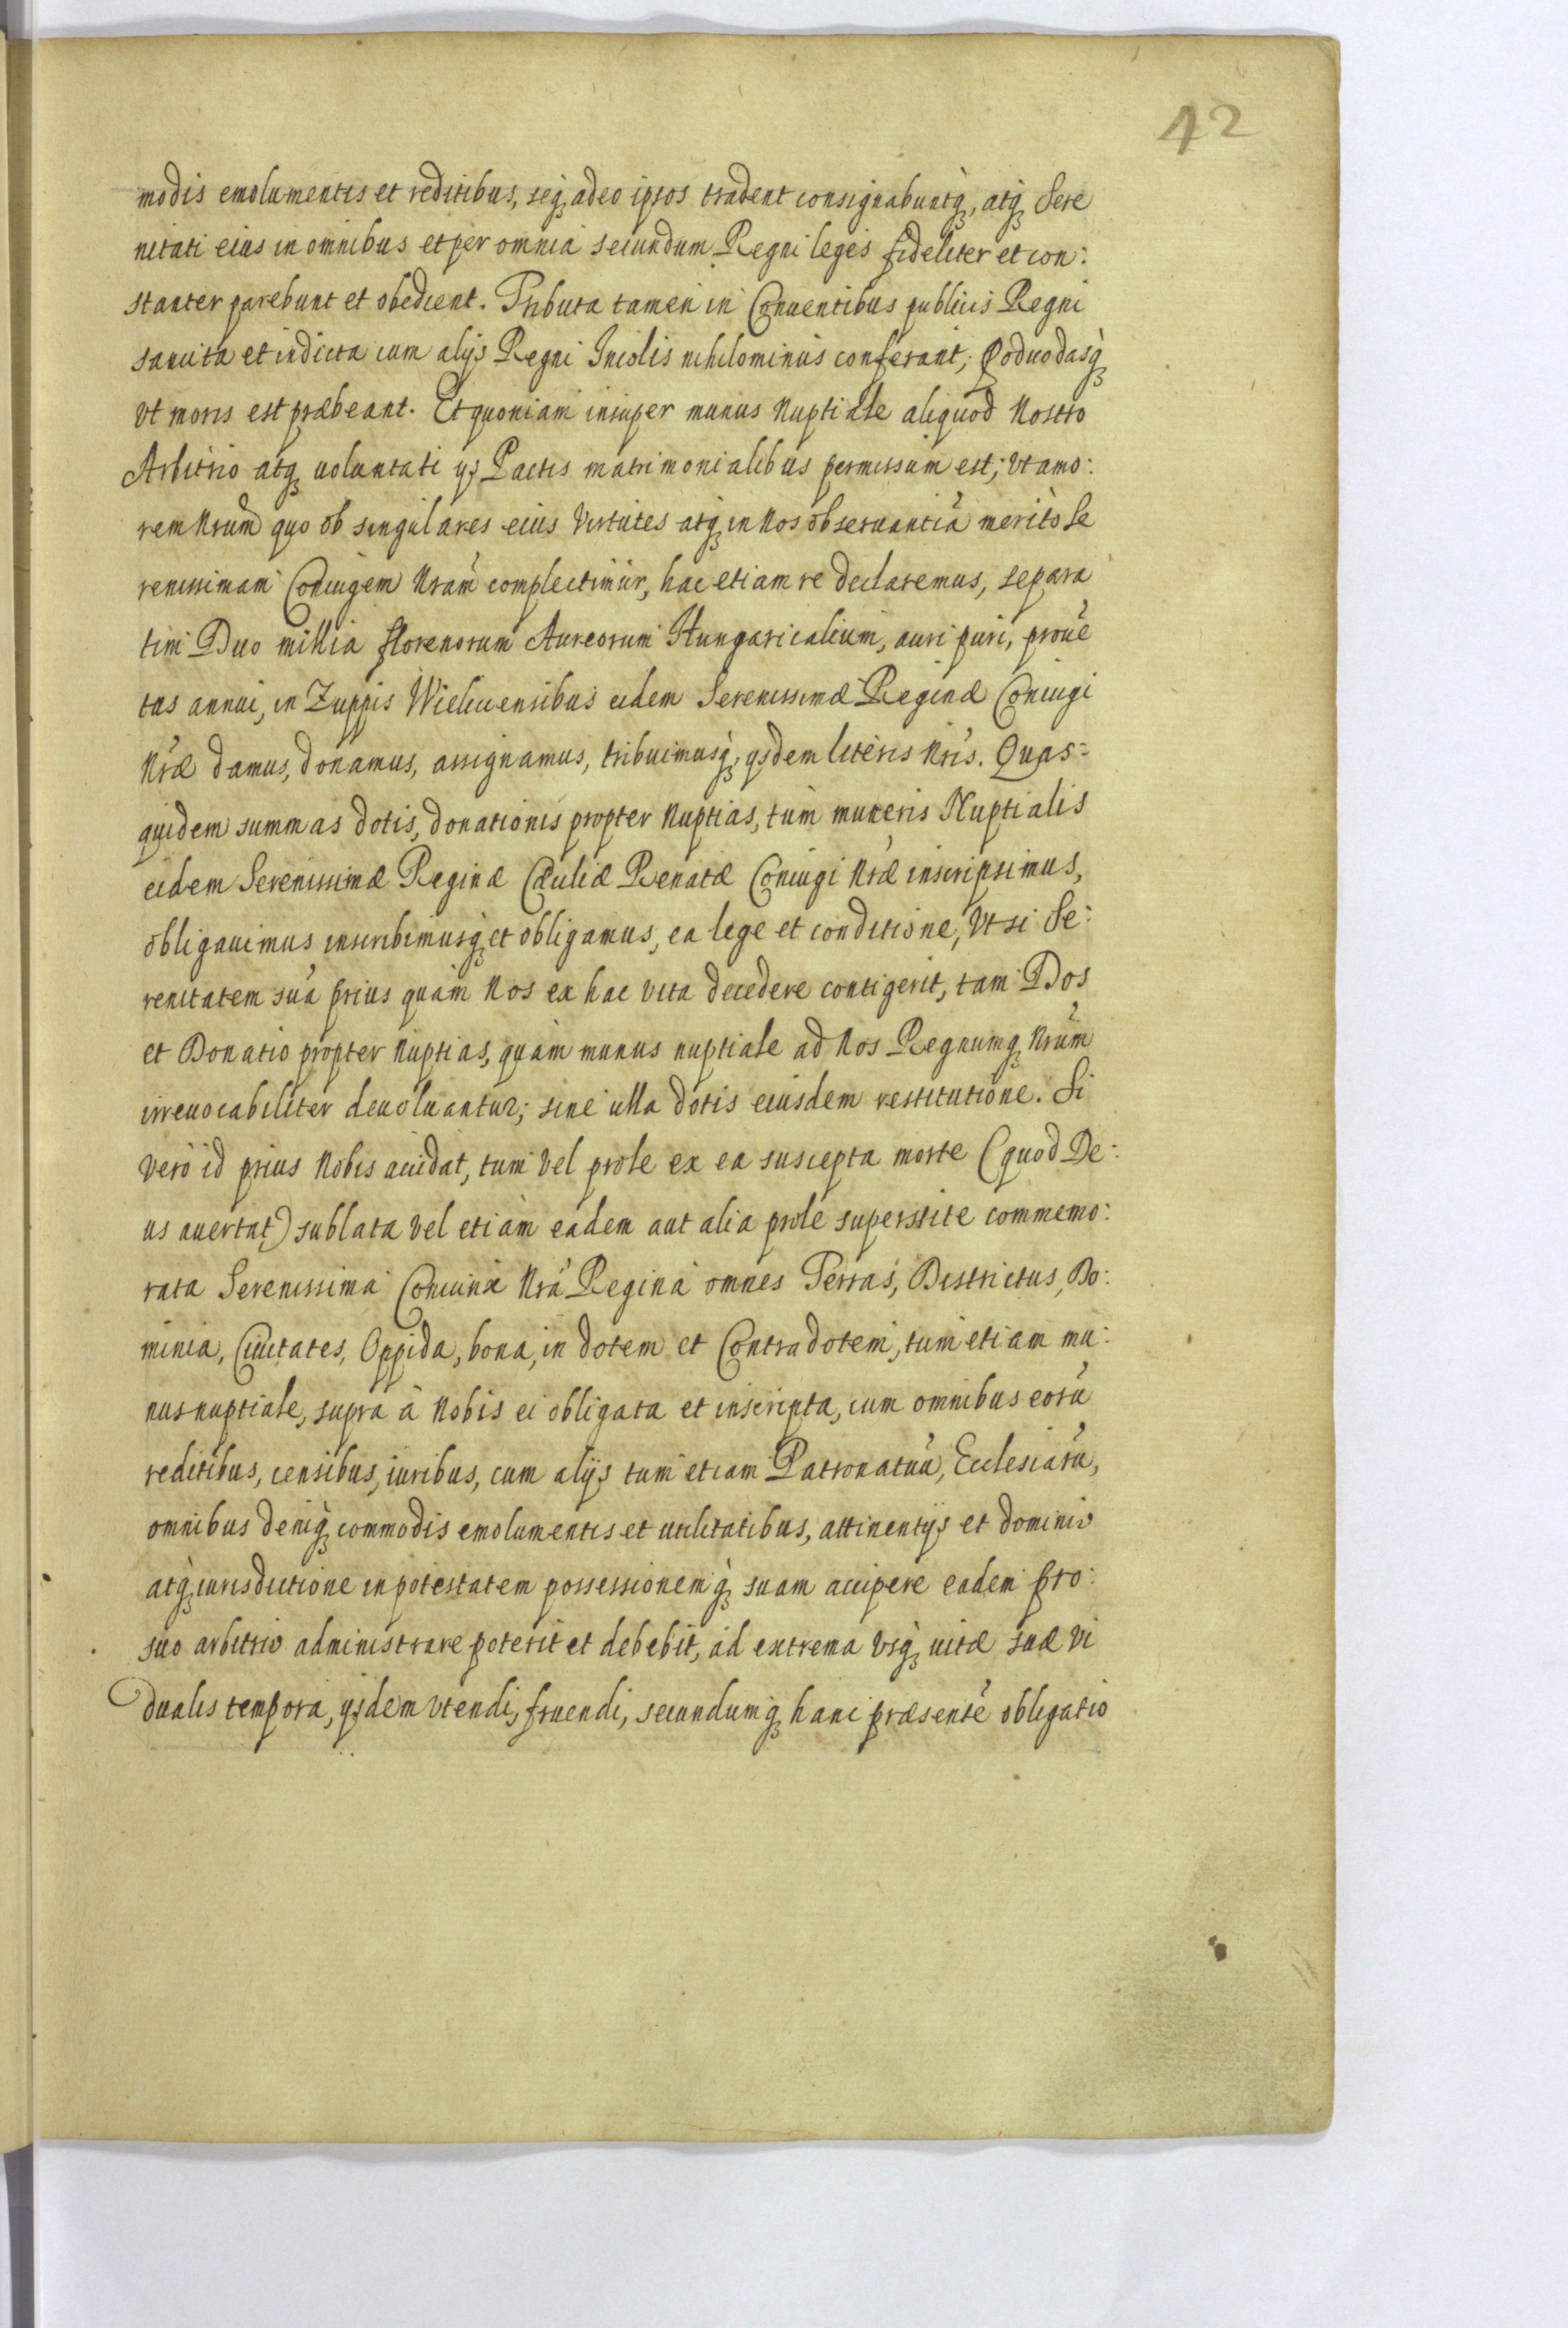 42
modis emolumentis et reditibus, seq́ adeo ipsos tradent consignabuntq́, atq́ Sere
nitati eius in omnibus et per omnia secundum Regni leges fideliter et con:
stanter parebunt et obedient. Tributa tamen in Conuentibus publicis Regni
sancita et indicta cum alijs Regni Incolis nihilominus conferant, Poduodasq́
vt moris est præbeant. Et quoniam insuper munus Nuptiale aliquod Nostro
Arbitrio atq́ uoluntati ijs Pactis matrimonialibus permissum est; vt amo:
rem Nrũm quo ob singulares eius Virtutes atq́ in Nos obseruantiã meritò Se
renissimam Coniugem Nrãm complectimur, hac etiam re declaremus, separa
tim Duo millia florenorum Aureorum Hungaricalium, auri puri, prouẽ
tus annui, in Zuppis Wielicensibus eidem Serenissimæ Reginæ Coniugi
Nræ̃ damus, donamus, assignamus, tribuimusq́, ijsdem literis Nrĩs. Quas:
quidem summas dotis, donationis propter Nuptias, tùm muneris Nuptialis
eidem Serenissimæ Reginæ Cæciliæ Renatæ Coniugi Nræ̃ inscripsimus,
obligauimus inscribimusq́ et obligamus, ea lege et conditione, vt si Se:
renitatem suã prius quàm Nos ex hac vita decedere contigerit, tam Dos
et Donatio propter Nuptias, quàm munus nuptiale ad Nos Regnumq́ Nrũm
irreuocabiliter deuoluantur; sine ulla dotis eiusdem restitutione. Si
verò id prius Nobis accidat, tum vel prole ex ea suscepta morte (quod De:
us auertat) sublata vel etiàm eadem aut alia prole superstite commemo:
rata Serenissima Coniunx Nrã Regina omnes Terras, Districtus, Do:
minia, Ciuitates, Oppida, bona, in dotem et Contradotem, tum etiam mu:
nus nuptiale, supra à Nobis ei obligata et inscripta, cum omnibus eorũ
reditibus, censibus, iuribus, cum alijs tum etiam Patronatuũ, Ecclesiarũ,
omnibus deniq́ commodis emolumentis et utilitatibus, attinentijs et dominio
atq́ iurisdictione in potestatem possessionemq́ suam accipere eadem pro:
suo arbitrio administrare poterit et debebit, ad extrema vsq́ uitæ suæ vi
dualis tempora, ijsdem vtendi, fruendi, secundumq́ hanc præsentẽ obligatio